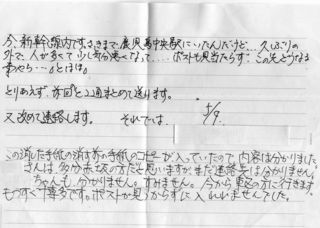 今、新幹線内です。さきまで、鹿児島中央駅にいたんだけど…久しぶりの
外で、人が多くて少し気分悪くなって……ポストも見当たらず：この先どうなる
事やら…。とほほ。
とりあえず、前回と2通まとめて送ります。
又改めて連絡します。 それでは…
5/9.
この消した手紙の消す前の手紙のコピーが入っていたので、内容は分かりました。
さんは、多分赤坂の方だと思いますが、まだ連絡先は分かりません。
ちゃんも、分かりません。すみません。今から東京の方に行きます。
もうすぐ博多です。ポストが見つからずに入れれいませんでした。